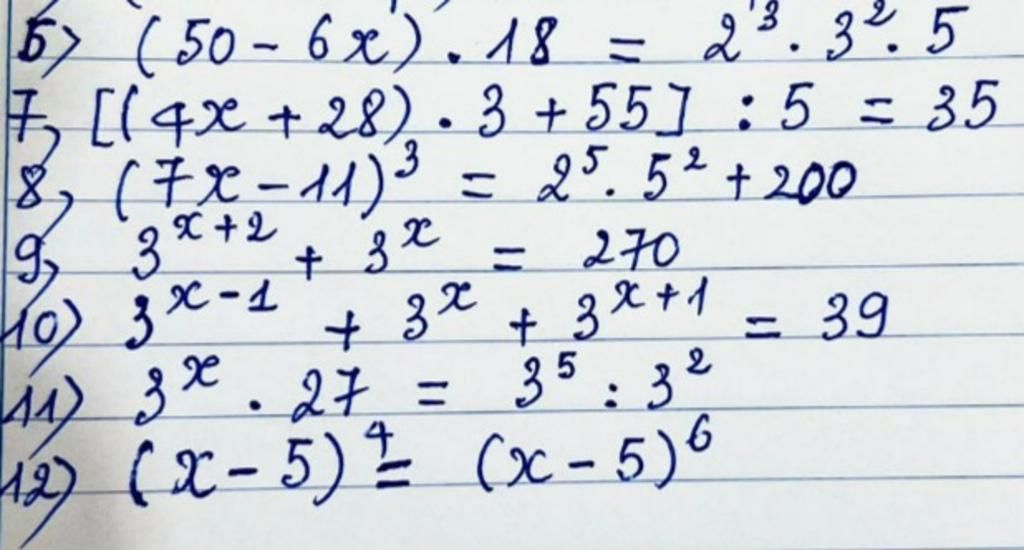 6) (50 - 6x) . 18 = 2³ . 3² . 5
7, [(4x + 28) . 3 + 55] : 5 = 35
8, (7x - 11)³ = 2⁵ . 5² + 200
9, 3ˣ⁺² + 3ˣ = 270
10) 3ˣ⁻¹ + 3ˣ + 3ˣ⁺¹ = 39
11) 3ˣ . 27 = 3⁵ : 3²
12) (x - 5)⁴ = (x - 5)⁶